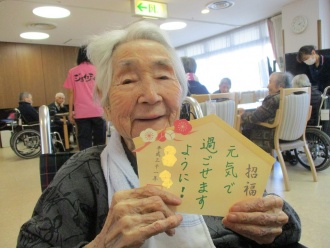 招福
元気で
過ごせます
ように！